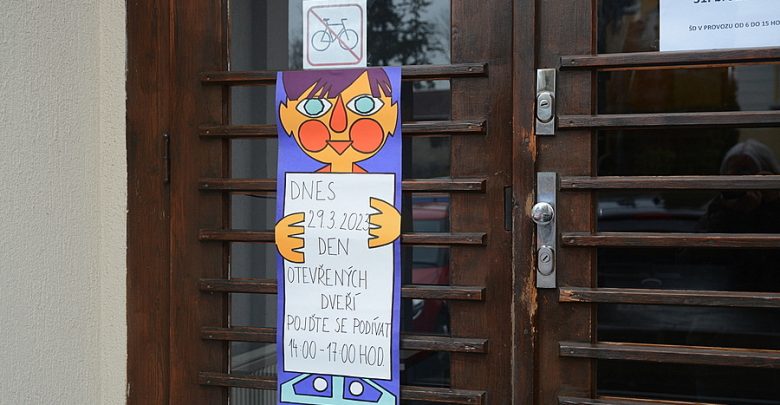 ŠD V PROVOZU OD 6 DO 15 HO
DNES
29.3.2023
DEN
OTEVŘENÝCH
DVEŘÍ
POJĎTE SE PODÍVAT
14:00-17:00 HOD.